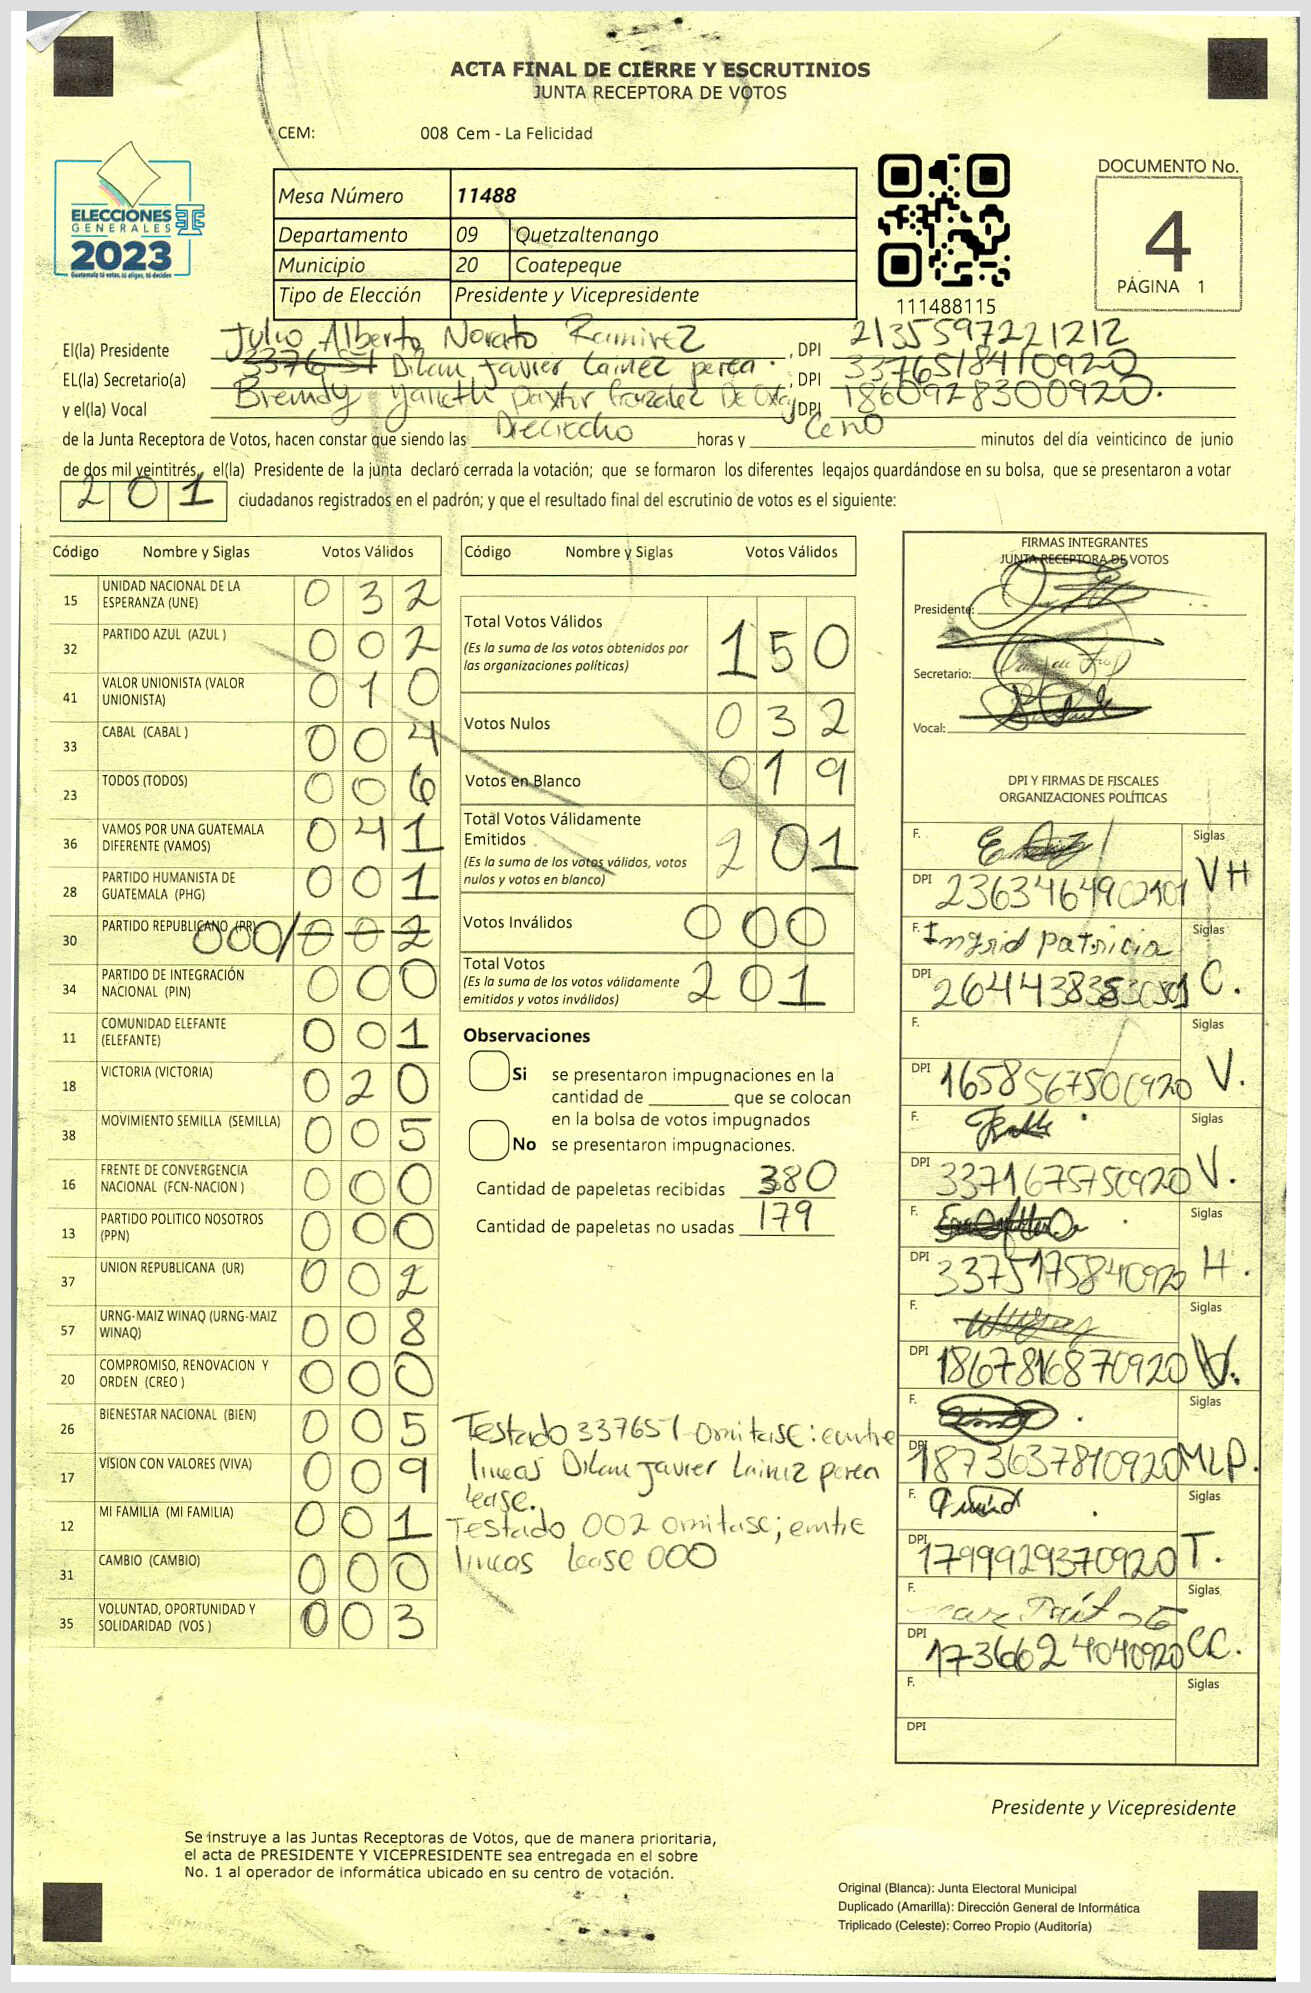 ACTA FINAL DE CIERRE Y ESCRUTINIOS
JUNTA RECEPTORA DE VOTOS
CEM: 008 Cem - La Felicidad
ELECCIONES
GENERALES
2023
Guatemala tú votas, tú eliges, tú decides
Mesa Número 11488
Departamento 09 Quetzaltenango
Municipio 20 Coatepeque
Tipo de Elección Presidente y Vicepresidente
111488115
DOCUMENTO No.
4
PÁGINA 1
El(la) Presidente Julio Alberto Norato Ramirez, DPI 2135597221212
EL(la) Secretario(a) Dilan Javier Lainez perea, DPI 3376518410920
y el(la) Vocal Brendy Yaneth DPI 1860928300920.
de la Junta Receptora de Votos, hacen constar que siendo las Dieciocho horas y Cero minutos del día veinticinco de junio
de dos mil veintitrés, el(la) Presidente de la junta declaró cerrada la votación; que se formaron los diferentes legajos quardándose en su bolsa, que se presentaron a votar
201 ciudadanos registrados en el padrón; y que el resultado final del escrutinio de votos es el siguiente:
Código Nombre y Siglas Votos Válidos
15 UNIDAD NACIONAL DE LA ESPERANZA (UNE) 032
32 PARTIDO AZUL (AZUL ) 002
41 VALOR UNIONISTA (VALOR UNIONISTA) 010
33 CABAL (CABAL ) 004
23 TODOS (TODOS) 006
36 VAMOS POR UNA GUATEMALA DIFERENTE (VAMOS) 041
28 PARTIDO HUMANISTA DE GUATEMALA (PHG) 001
30 PARTIDO REPUBLICANO (PR) 000/002
34 PARTIDO DE INTEGRACIÓN NACIONAL (PIN) 000
11 COMUNIDAD ELEFANTE (ELEFANTE) 001
18 VICTORIA (VICTORIA) 020
38 MOVIMIENTO SEMILLA (SEMILLA) 005
16 FRENTE DE CONVERGENCIA NACIONAL (FCN-NACION ) 000
13 PARTIDO POLITICO NOSOTROS (PPN) 000
37 UNION REPUBLICANA (UR) 002
57 URNG-MAIZ WINAQ (URNG-MAIZ WINAQ) 008
20 COMPROMISO, RENOVACION Y ORDEN (CREO ) 000
26 BIENESTAR NACIONAL (BIEN) 005
17 VISION CON VALORES (VIVA) 009
12 MI FAMILIA (MI FAMILIA) 001
31 CAMBIO (CAMBIO) 000
35 VOLUNTAD, OPORTUNIDAD Y SOLIDARIDAD (VOS ) 003
Código Nombre y Siglas Votos Válidos
Total Votos Válidos 150
(Es la suma de los votos obtenidos por
las organizaciones políticas)
Votos Nulos 032
Votos en Blanco 019
Total Votos Válidamente
Emitidos 201
(Es la suma de los votos válidos, votos
nulos y votos en blanco)
Votos Inválidos 000
Total Votos 201
(Es la suma de los votos válidamente
emitidos y votos inválidos)
Observaciones
Si se presentaron impugnaciones en la
cantidad de ________ que se colocan
en la bolsa de votos impugnados
No se presentaron impugnaciones.
Cantidad de papeletas recibidas 380
Cantidad de papeletas no usadas 179
Testado 337651 omitase: entre
lineas Dilan Javier Lainez perea
lease.
Testado 002 omitase; entre
lineas lease 000
FIRMAS INTEGRANTES
JUNTA RECEPTORA DE VOTOS
Presidente:
Secretario:
Vocal:
DPI Y FIRMAS DE FISCALES
ORGANIZACIONES POLÍTICAS
F. Siglas
DPI 2363464902101 VH
F. Ingrid Patricia Siglas
DPI C.
F. Siglas
DPI 1658567500920 V.
F. Siglas
DPI 3371675750920 V.
F. Siglas
DPI 3375175840920 H.
F. Siglas
DPI 1867816870920 V.
F. Siglas
DPI 1873637810920 MLP.
F. Siglas
DPI 1799929370920 T.
F. Siglas
DPI 1736624040920 CC.
F. Siglas
DPI
Presidente y Vicepresidente
Se instruye a las Juntas Receptoras de Votos, que de manera prioritaria,
el acta de PRESIDENTE Y VICEPRESIDENTE sea entregada en el sobre
No. 1 al operador de informática ubicado en su centro de votación.
Original (Blanca): Junta Electoral Municipal
Duplicado (Amarilla): Dirección General de Informática
Triplicado (Celeste): Correo Propio (Auditoría)